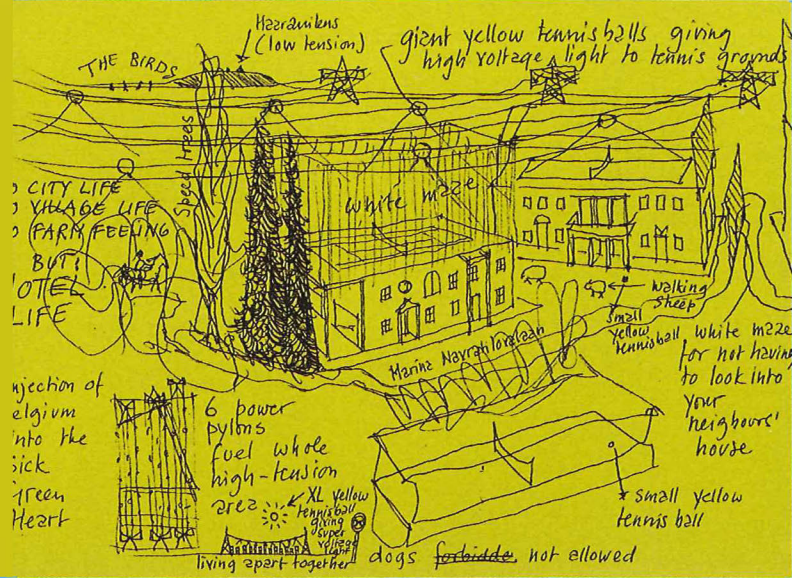 Haaranikens
(low tension)
giant yellow tennisballs giving
high voltage light to tennis grounds
THE BIRDS
Speed trees
CITY LIFE
VILLAGE LIFE
FARM FEELING
BUT:
OTEL
LIFE
white maze
walking
sheep
small
yellow
tennisball
white maze
for not having
to look into
your
neighbours'
house
Marina Navratilovalaan
njection of
elgium
into the
sick
Green
Heart
6 power
pylons
fuel whole
high-tension
area
XL yellow
tennisball
giving
super
voltage
light
living apart together
small yellow
tennis ball
dogs forbidde, not allowed